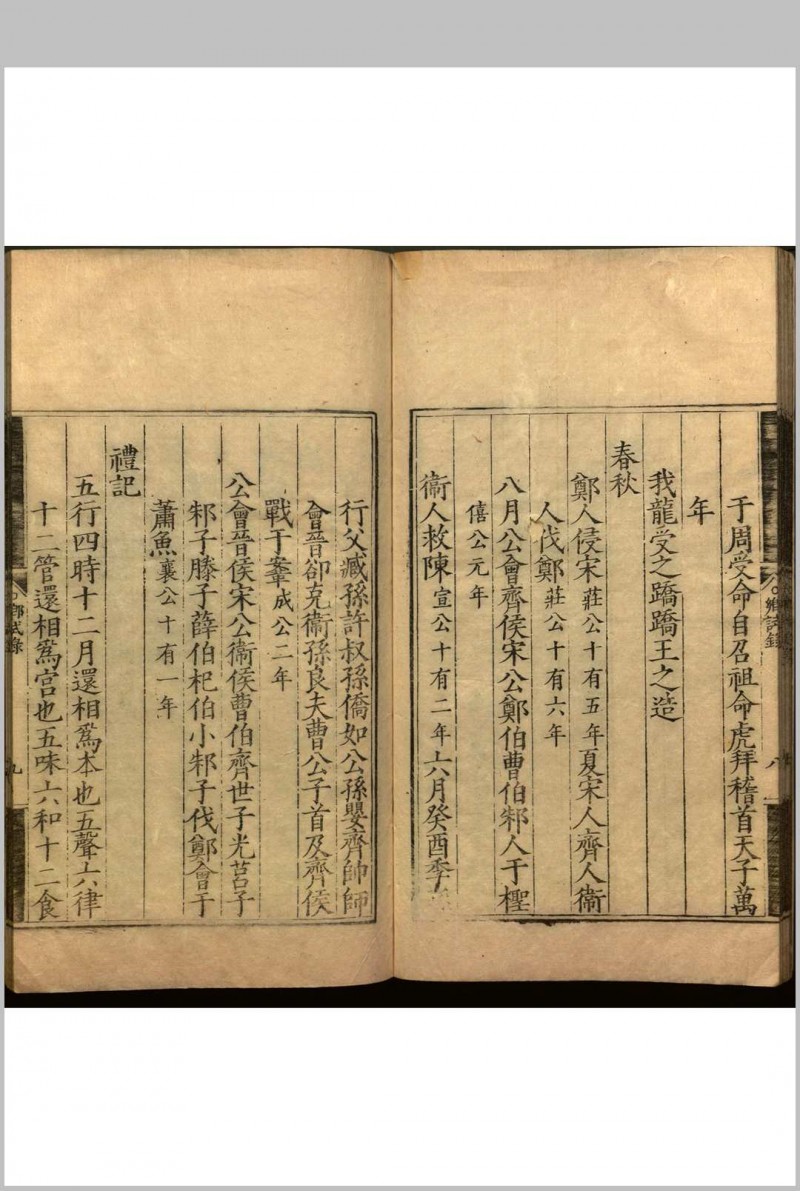 于周受命自召祖命虎拜稽首天子萬
年
我龍受之蹻蹻王之造
春秋
鄭人侵宋莊公十有五年夏宋人齊人衞
人伐鄭莊公十有六年
八月公會齊侯宋公鄭伯曹伯邾人于檉
僖公元年
衞人救陳宣公十有二年六月癸酉季
鄉試錄
八
行父臧孫許叔孫僑如公孫嬰齊帥師
會晉郤克衞孫良夫曹公子首及齊侯
戰于鞌成公二年
公會晉侯宋公衞侯曹伯齊世子光莒子
邾子滕子薛伯杞伯小邾子伐鄭會于
蕭魚襄公十有一年
禮記
五行四時十二月還相爲本也五聲六律
十二管還相爲宮也五味六和十二食
鄉試錄
九